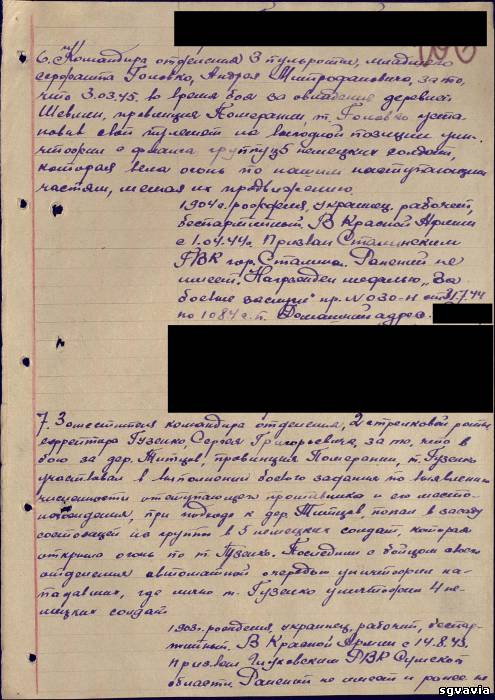 6. Командира отделения 3 пульроты, младшего
сержанта Головко, Андрея Митрофановича, за то,
что 3.03.45. во время боя за овладение деревней
провинция Померания, т. Головко уста-
новив свой пулемет на выгодной позиции уни-
чтожил с фланга группу 5 немецких солдат,
которая вела огонь по нашим наступающим
частям, мешая их продвижению.
1904 г. рождения, украинец, рабочий,
беспартийный. В Красной Армии
с 1.04.44г. Призван Сталинским
РВК гор. Сталина. Ранений не
имеет. Награжден медалью „За
боевые заслуги" пр. N 030-н от 31.7.44
по 1084 с.п. Домашний адрес
7. Заместителя командира отделения, 2 стрелковой роты
ефрейтора Гузенко, Сергея Григорьевича, за то, что в
бою за дер. провинция Померания, т. Гузенко
участвовал в выполнении боевого задания по выявлению
численности отступающего противника и его место-
нахождения, при подходе к дер. попал в засаду
состоящей из группы в 5 немецких солдат, которая
открыла огонь по т. Гузенко. Последний с бойцом своего
отделения автоматной очередью уничтожил на-
падавших, где лично т. Гузенко уничтожил 4 не-
мецких солдат
1903г. рождения, украинец, рабочий, беспар-
тийный. В Красной Армии с 14.8.43.
Призван Глуховским РВК Сумской
области. Ранений не имеет и ранее не
sgvavia